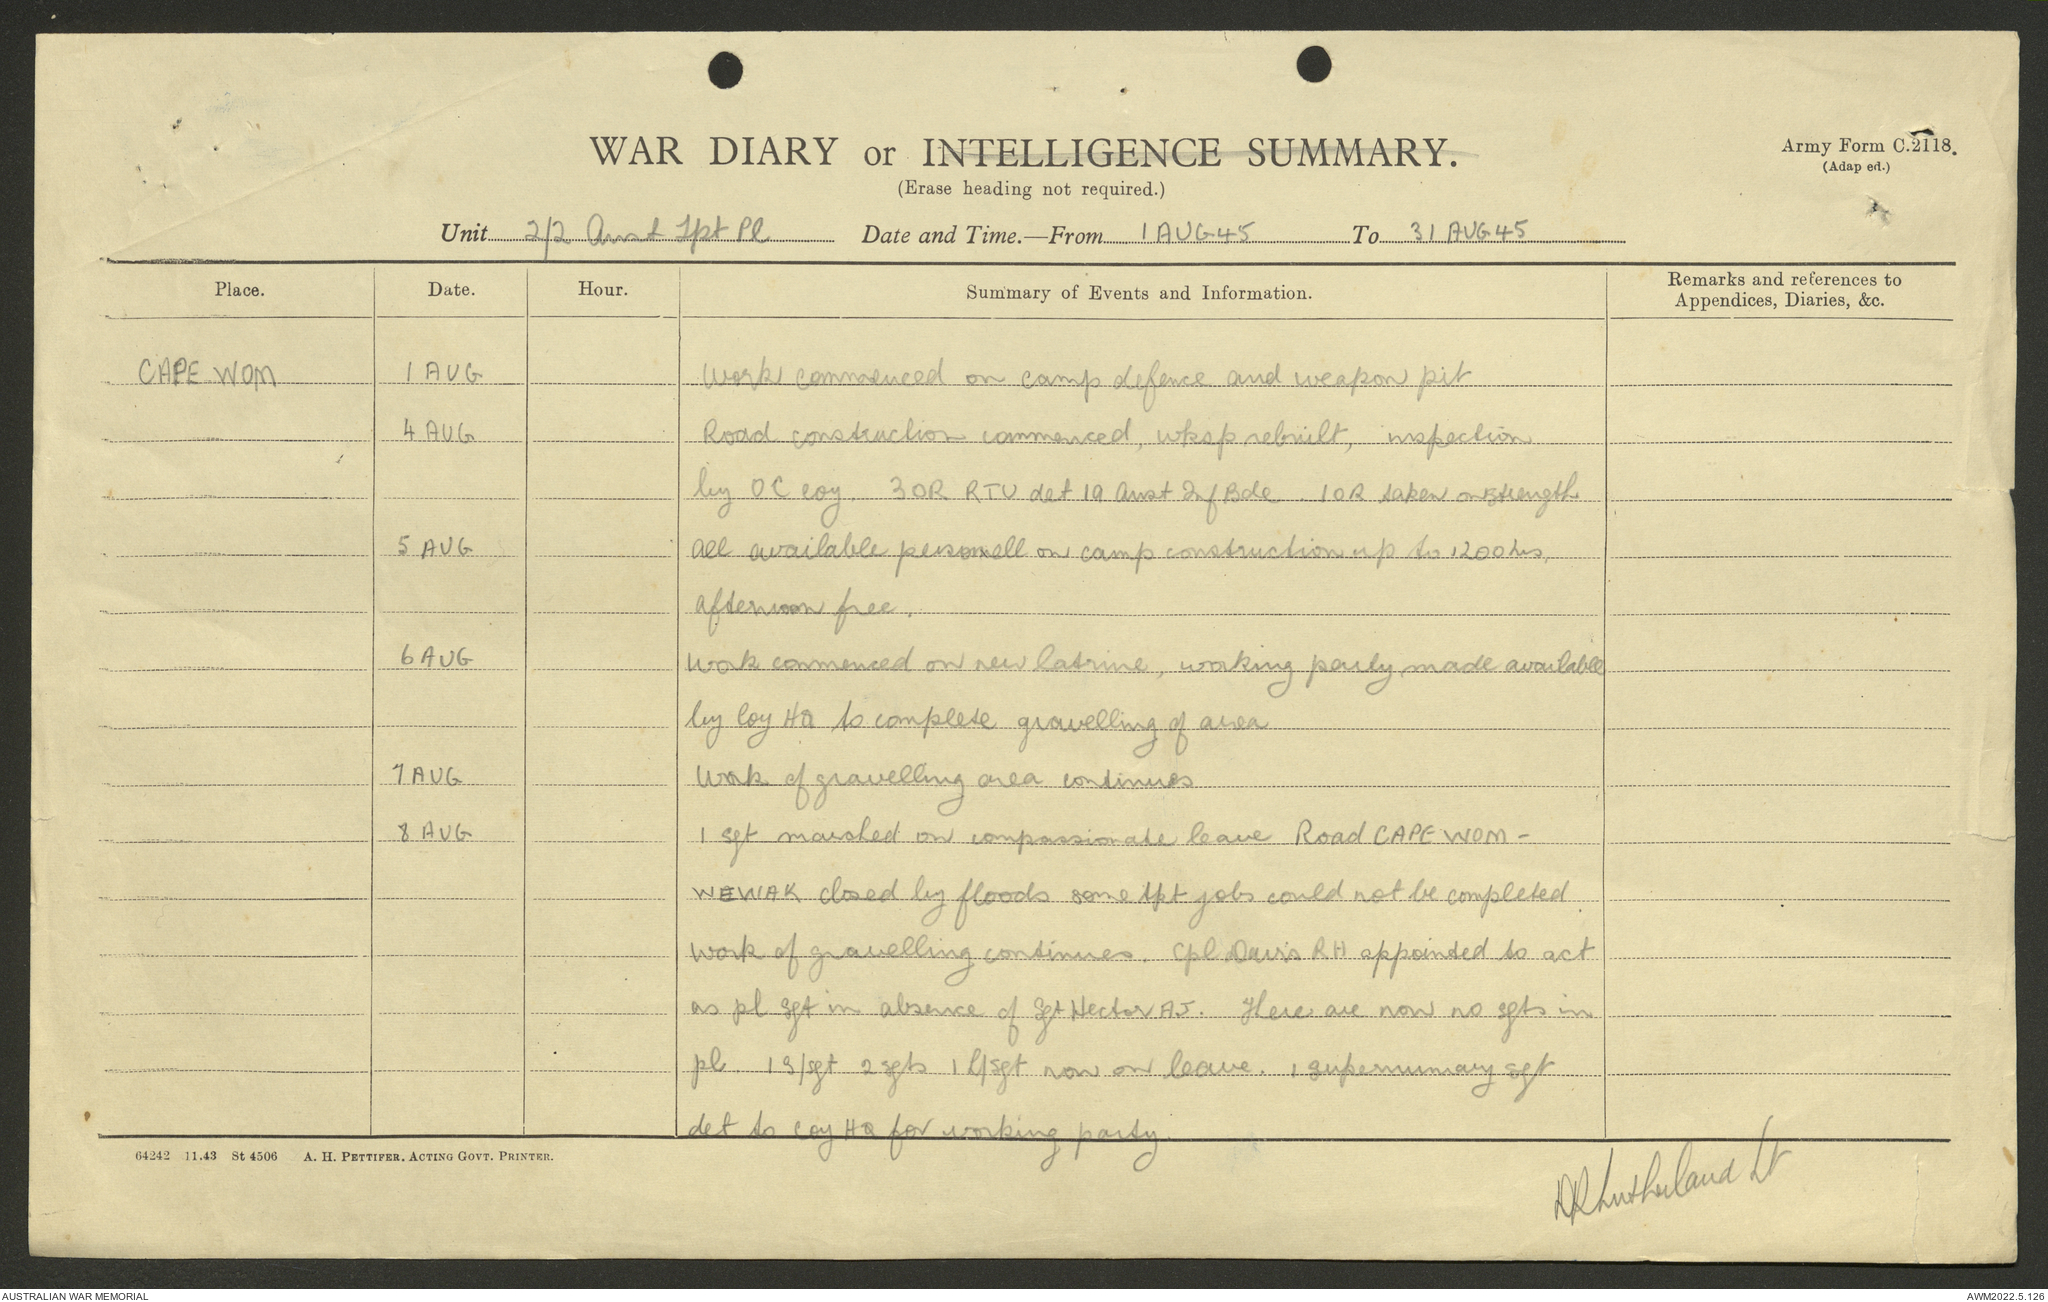 WAR DIARY or INTELLIGENCE SUMMARY.
Army Form C.2118.
(Adap ed.)
(Erase heading not required.)
Unit 2/2 Aust Tpt Pl Date and Time.—From 1 AUG 45 To 31 AUG 45
Place. Date. Hour. Summary of Events and Information. Remarks and references to Appendices, Diaries, &c.
CAPE WOM 1 AUG Work commenced on camp defence and weapon pit
4 AUG Road construction commenced, wksp rebuilt, inspection
by OC coy. 3 OR RTU det 19 Aust Inf Bde. 1 OR taken on strength
5 AUG All available personell on camp construction up to 1200 hrs,
afternoon free.
6 AUG Work commenced on new latrine, working party made available
by Coy HQ to complete gravelling of area
7 AUG Work of gravelling area continues
8 AUG 1 Sgt marched on compassionate leave Road CAPE WOM -
WEWAK closed by floods some tpt jobs could not be completed
Work of gravelling continues. Cpl Davis RH appointed to act
as pl sgt in absence of Sgt Hector AJ. There are now no sgts in
pl. 1 S/sgt 2 sgts 1 L/sgt now on leave. 1 supernumary sgt
det to coy HQ for working party.
64242 11.43 St 4506 A. H. PETTIFER, ACTING GOVT. PRINTER.
Sutherland Lt
AUSTRALIAN WAR MEMORIAL
AWM2022.5.126